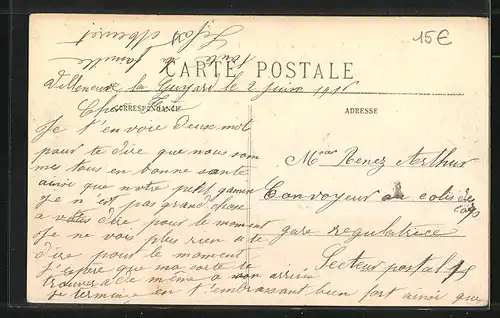 15€
toute la famille
CARTE POSTALE
Villeneuve la Guyard le 2 Juin 191
CORRESPONDANCE
ADRESSE
Je t'envoie deux mot
pour te dire que nous som
mes tous en bonne santé
ainsi que notre petit gamin
Je n'est pas grand chose
a votes dire pour le moment
Je ne vois plus rien a te
dire pour le moment
J'espère que ma carte te
trouvera de même a son arrivée
Je termine en t'embrassant bien fort ainsi que
Renez Arthur
Convoyeur au colis des
gare regulatrice
Secteur postal